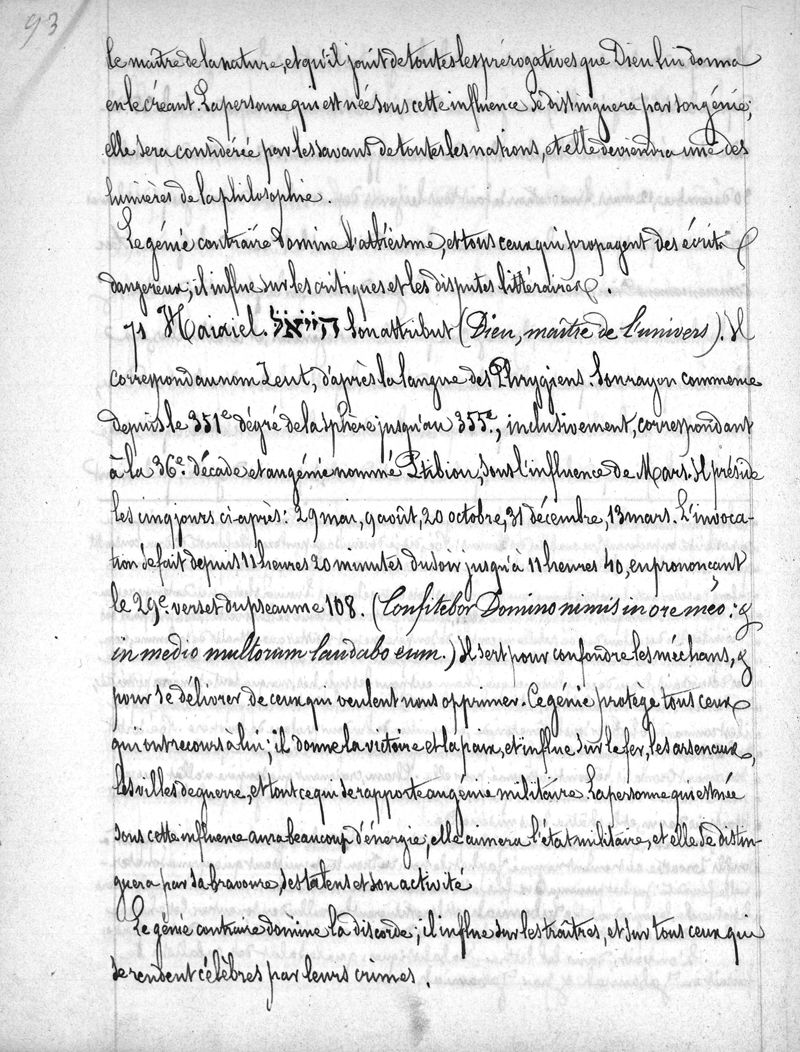 93
le maître de la nature, et qu'il jouit de toutes les prérogatives que Dieu lui donna
en le créant. La personne qui est née sous cette influence se distinguera par son génie;
elle sera considérée par les savans de toutes les nations, et elle deviendra une des
lumières de la philosophie.
Le génie contraire domine l'athéisme, et tous ceux qui propagent des écrits
dangereux; il influe sur les critiques et les disputes littéraires.
71 Haiaiel. הײאל Son attribut (Dieu, maître de l'univers). Il
correspond au nom Zeut, d'après la langue des Phrygiens. Son rayon commence
depuis le 351e dégré de la sphère jusqu'au 355e, inclusivement, correspondant
à la 36e décade et au génie nommé Ptibiou, sous l'influence de Mars. Il préside
les cinq jours ci-après: 29 mai, 9 août, 20 octobre, 31 décembre, 13 mars. L'invoca-
tion se fait depuis 11 heures 20 minutes du soir jusqu'à 11 heures 40, en prononçant
le 29e verset du pseaume 108. (Confitebor Domino nimis in ore meo: &
in medio multorum laudabo eum.) Il sert pour confondre les méchans, &
pour se délivrer de ceux qui veulent nous opprimer. Ce génie protège tous ceux
qui ont recours à lui; il donne la victoire et la paix, et influe sur le fer, les arsenaux,
les villes de guerre, et tout ce qui se rapporte au génie militaire. La personne qui est née
sous cette influence aura beaucoup d'énergie; elle aimera l'état militaire, et elle se distin-
guera par sa bravoure, ses talens et son activité
Le génie contraire domine la discorde; il influe sur les traîtres, et sur tous ceux qui
se rendent célèbres par leurs crimes.